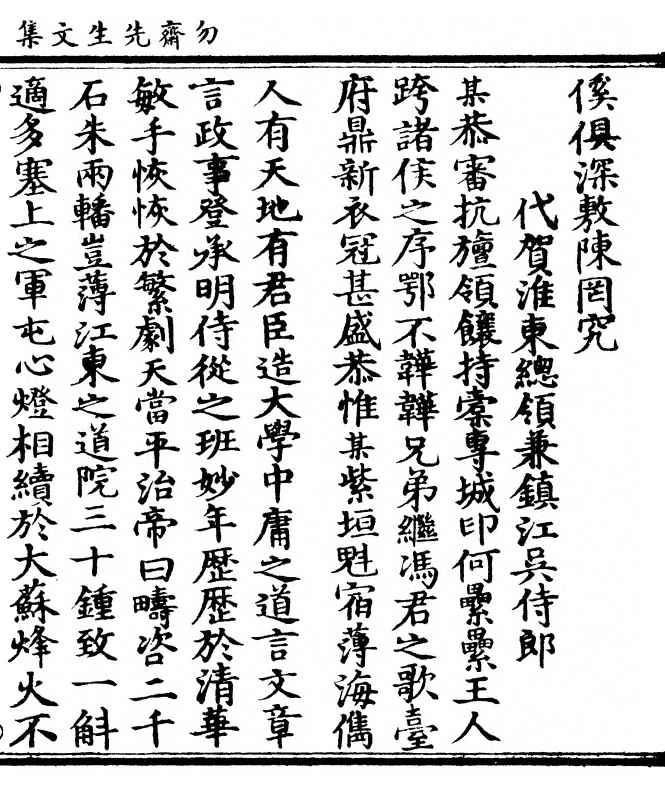 勿齋先生文集
傒俱深敷陳罔究
代賀淮東總領兼鎮江吳侍郎
某恭審抗旜領饟持橐專城印何纍纍王人
跨諸侯之序鄂不韡韡兄弟繼馮君之歌臺
府鼎新衣冠甚盛恭惟某紫垣魁宿薄海儁
人有天地有君臣造大學中庸之道言文章
言政事登承明侍從之班妙年歷歷於清華
敏手恢恢於繁劇天當平治帝曰疇咨二千
石朱兩轓豈薄江東之道院三十鍾致一斛
適多塞上之軍屯心燈相續於大蘇烽火不